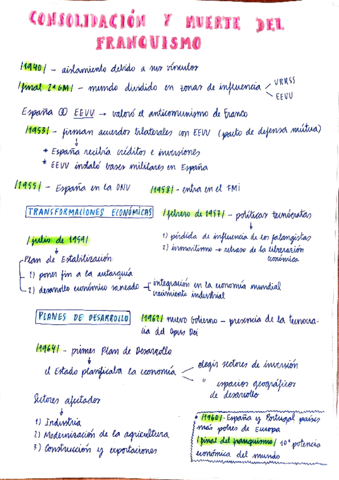 CONSOLIDACIÓN Y MUERTE DEL
FRANQUISMO
/1940/ - aislamiento debido a sus vínculos
/final 2ªGM/ - mundo dividido en zonas de influencia
URRSS
EEUU
España EEUU → valoró el anticomunismo de Franco
/1953/ - firman acuerdos bilaterales con EEUU (pacto de defensa mútua)
* España recibiría créditos e inversiones
* EEUU instaló bases militares en España
/1955/ - España en la ONU
/1958/ - entra en el FMI
TRANSFORMACIONES ECONÓMICAS
/febrero de 1957/ - políticas tecnócratas
1) pérdida de influencia de los falangistas
2) inmovilismo → retraso de la liberación
económica
/julio de 1959/
Plan de Estabilización
1) poner fin a la autarquía
2) desarrollo económico saneado
integración en la economía mundial
crecimiento industrial
PLANES DE DESARROLLO
/1962/ nuevo Gobierno - presencia de la tecnocra-
cia del Opus Dei
/1964/ - primer Plan de Desarrollo
el Estado planificaba la economía
elegir sectores de inversión
" espacios geográficos
de desarrollo
Sectores afectados
1) Industria
2) Modernización de la agricultura
3) Construcción y exportaciones
* /1960/ - España y Portugal países
más pobres de Europa
/final del franquismo/ 10ª potencia
económica del mundo